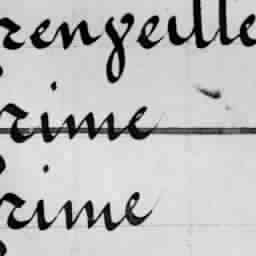 rengeille
rime
rime